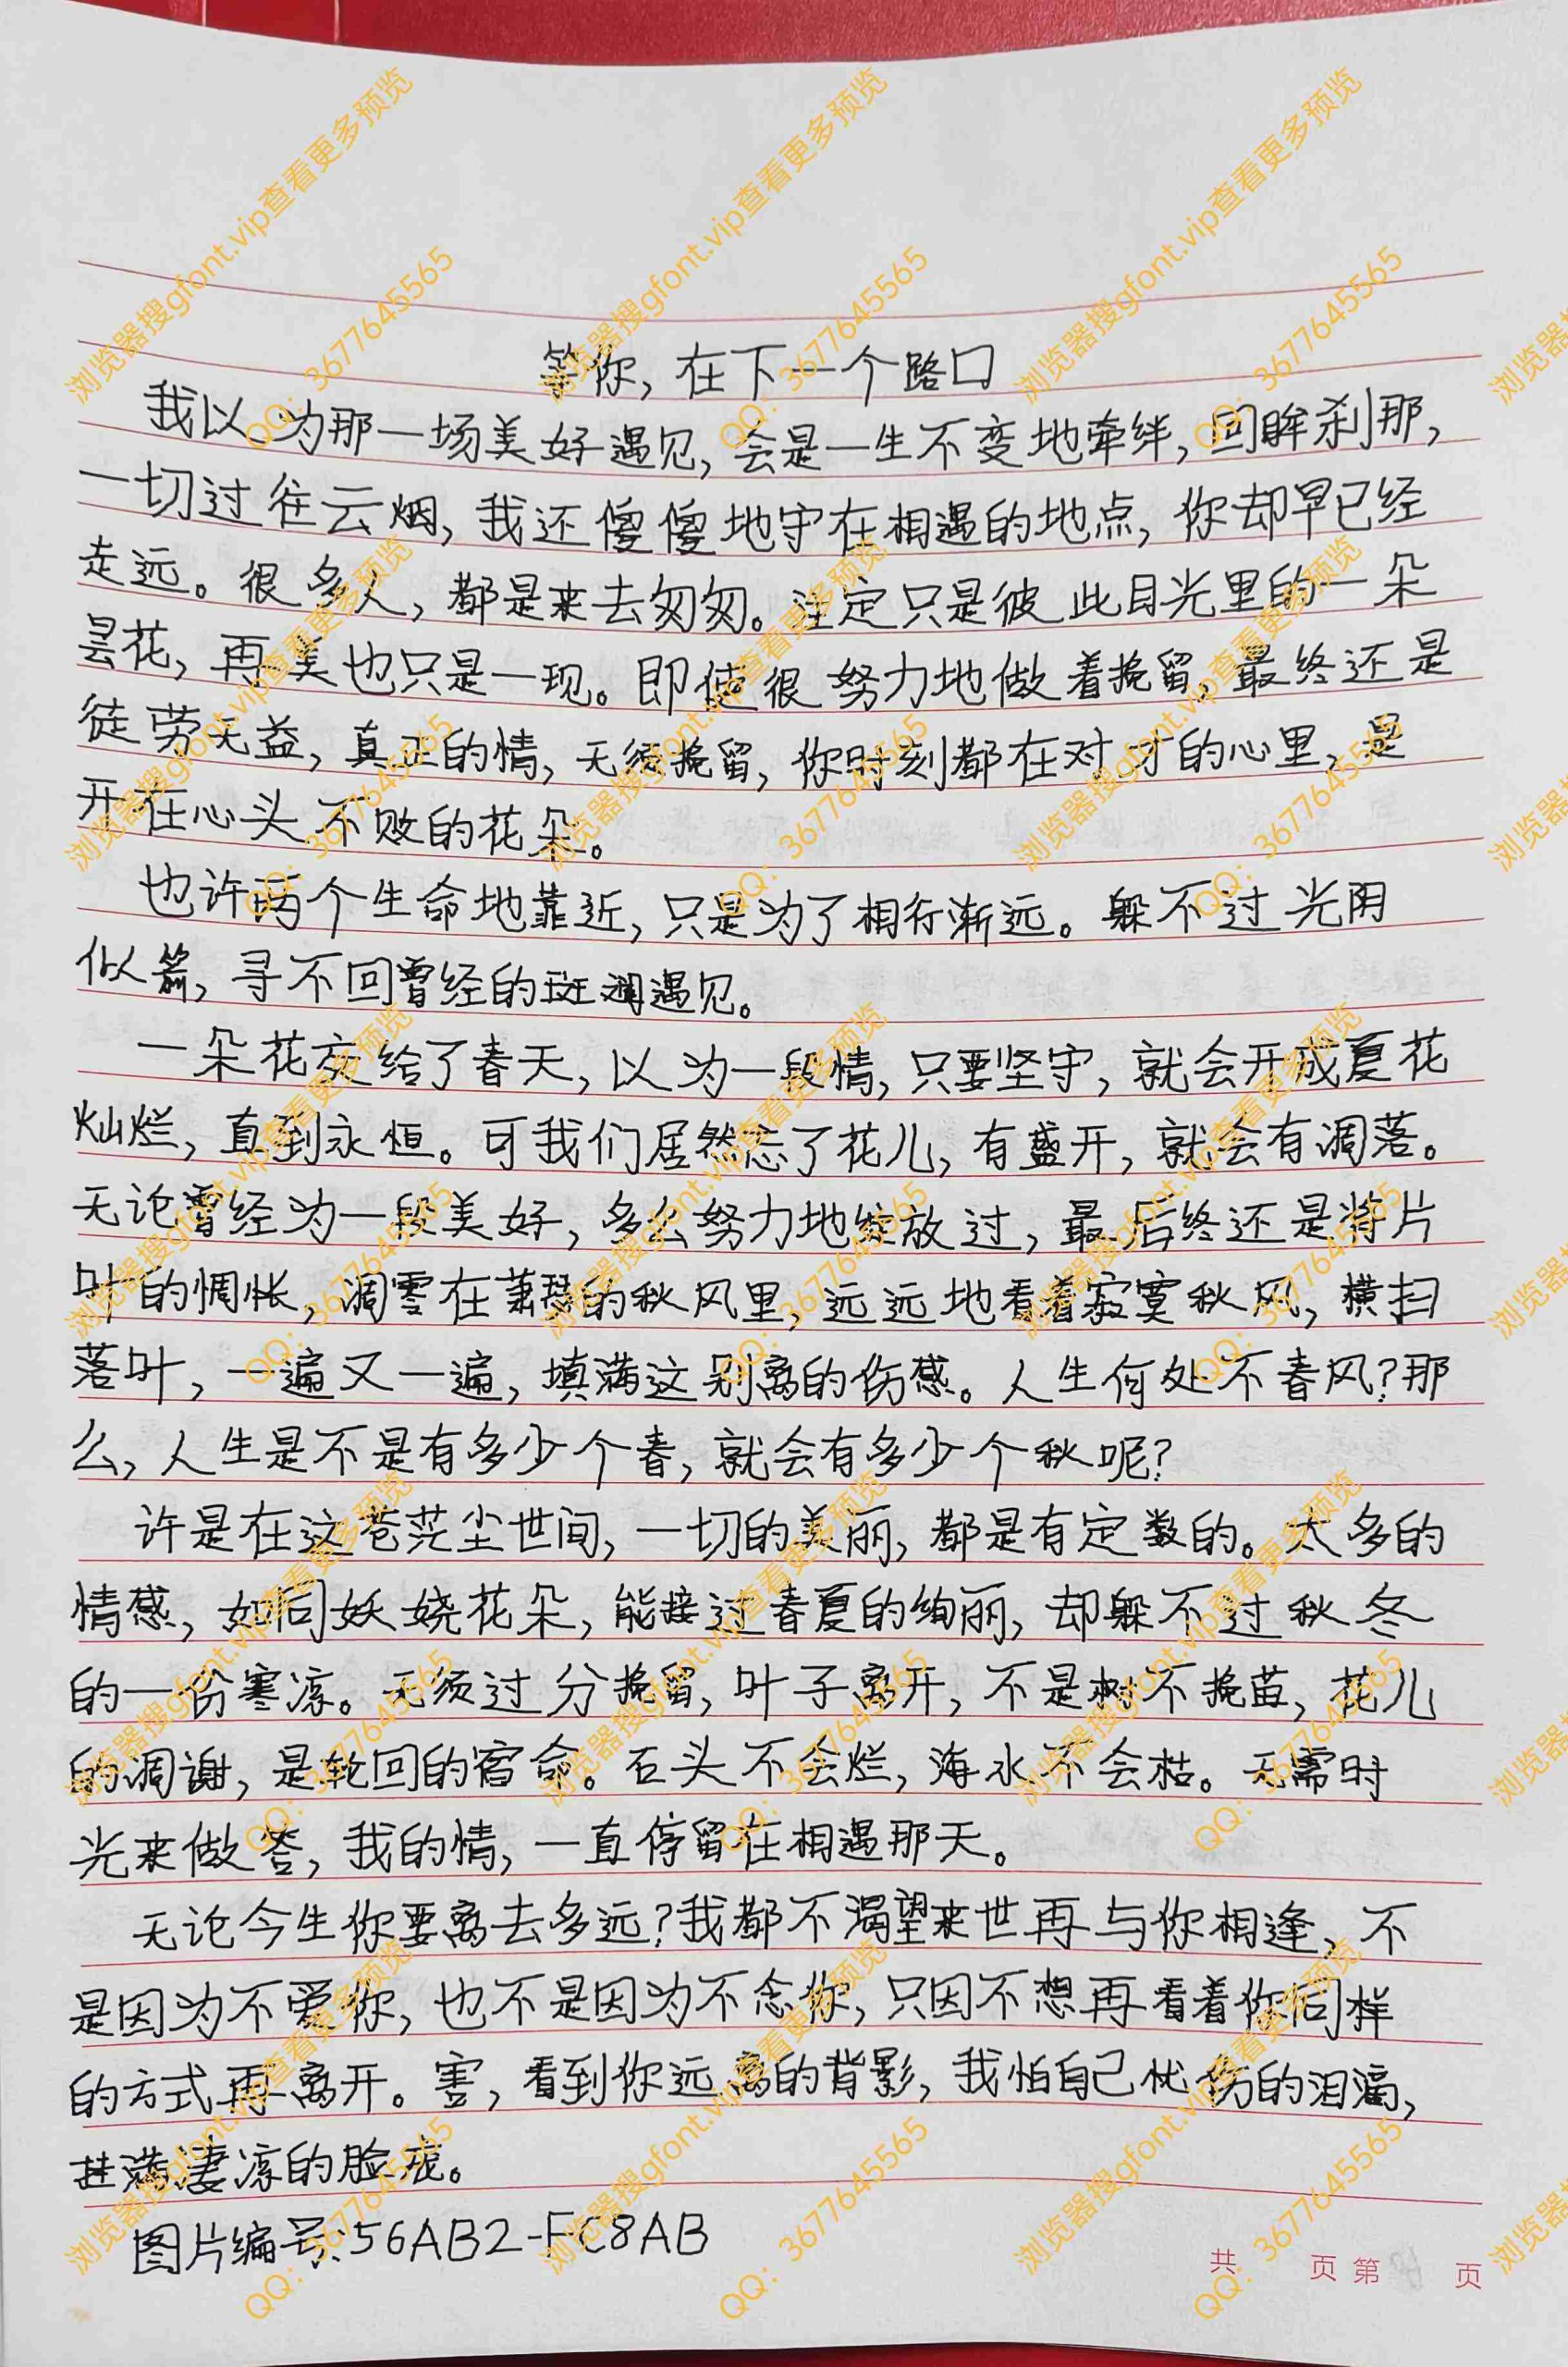 等你，在下一个路口
我以为那一场美好遇见，会是一生不变地牵绊，回眸刹那，
一切过往云烟，我还傻傻地守在相遇的地点，你却早已经
走远。很多人，都是来去匆匆。注定只是彼此目光里的一朵
昙花，再美也只是一现。即使很努力地做着挽留，最终还是
徒劳无益，真正的情，无须挽留，你时刻都在对方的心里，是
开在心头不败的花朵。
也许两个生命地靠近，只是为了相行渐远。躲不过光阴
似箭，寻不回曾经的斑斓遇见。
一朵花交给了春天，以为一段情，只要坚守，就会开成夏花
灿烂，直到永恒。可我们居然忘了花儿，有盛开，就会有凋落。
无论曾经为一段美好，多么努力地绽放过，最后终还是将片
叶的惆怅，凋零在萧瑟的秋风里，远远地看着寂寞秋风，横扫
落叶，一遍又一遍，填满这别离的伤感。人生何处不春风？那
么，人生是不是有多少个春，就会有多少个秋呢？
许是在这苍茫尘世间，一切的美丽，都是有定数的。太多的
情感，如同妖娆花朵，能接过春夏的绚丽，却躲不过秋冬
的一份寒凉。无须过分挽留，叶子离开，不是树不挽留，花儿
的凋谢，是轮回的宿命。石头不会烂，海水不会枯。无需时
光来做答，我的情，一直停留在相遇那天。
无论今生你要离去多远？我都不渴望来世再与你相逢，不
是因为不爱你，也不是因为不念你，只因不想再看着你同样
的方式再离开。害，看到你远离的背影，我怕自己忧伤的泪滴，
挂满凄凉的脸庞。
图片编号：56AB2-FC8AB
共 页 第 页
浏览器搜gfont.vip查看更多预览
QQ：3677645565